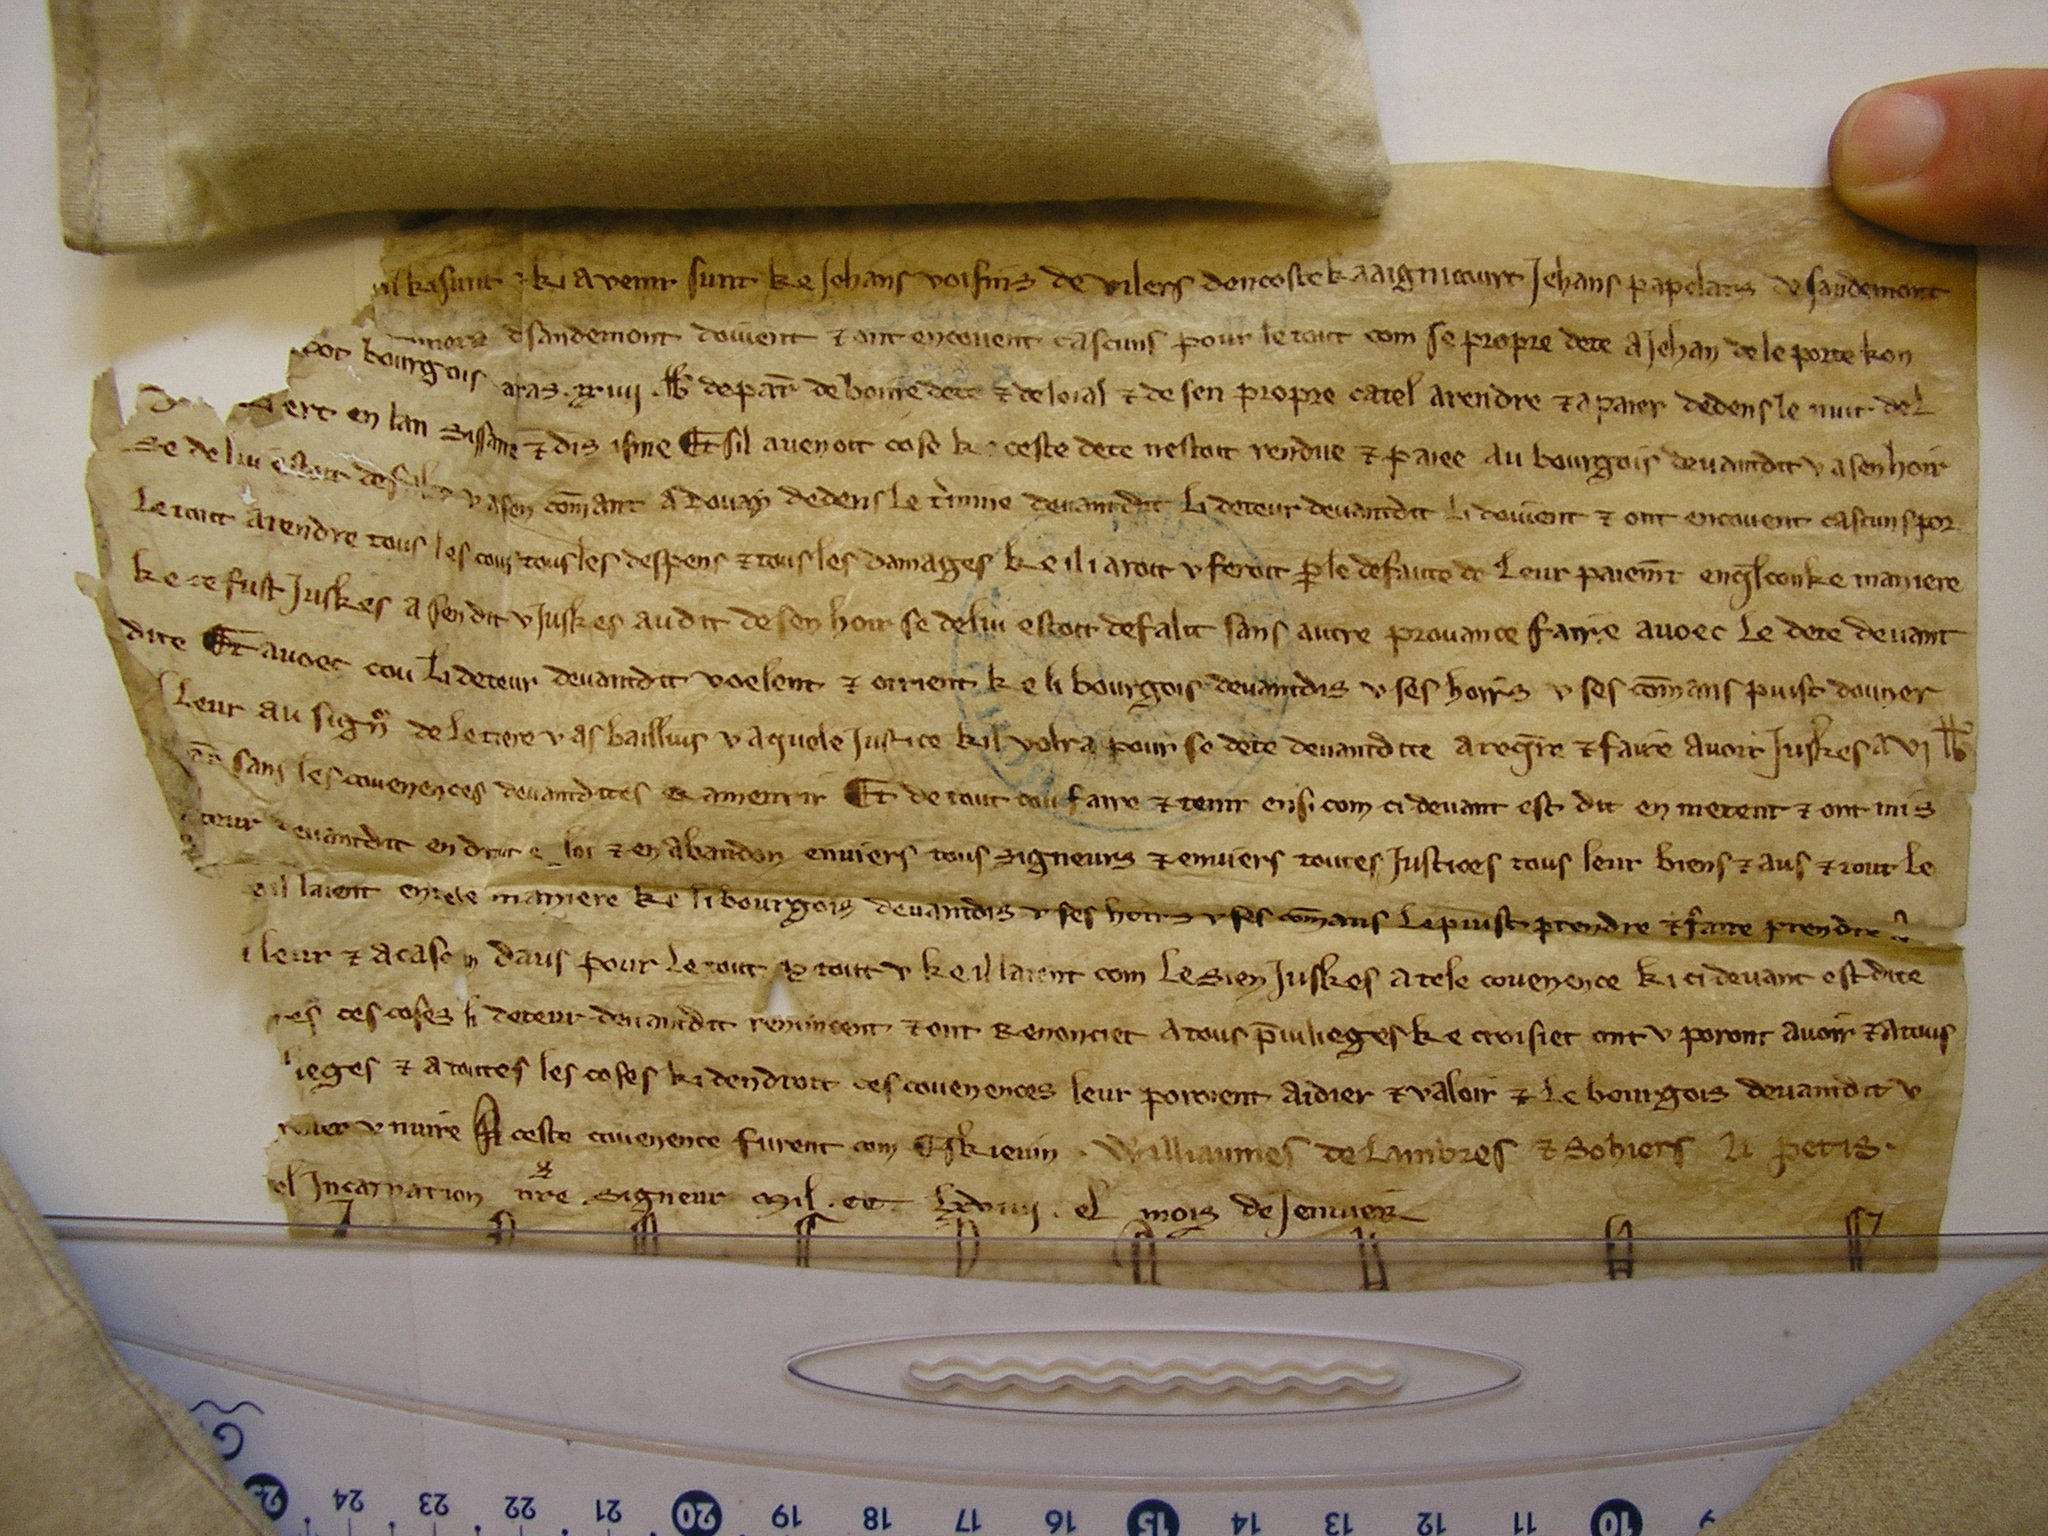 ki sunt ⁊ ki avenir sunt ke Jehans voisins de vilers dencoste kaaignicourt Jehans papelars de saudemont
dsaudemont doivent ⁊ ont encouent cascuns pour le tout com se propre dete a Jehan de le porte kon
bourgois aras .xxiiij .lb de par̄ de boine dete ⁊ de loial ⁊ de sen propre catel a rendre ⁊ a paier dedens le nuit del
en lan sissante ⁊ dis isme Et sil avenoit cose ke ceste dete nestoit rendue ⁊ paiee au bourgois devantdit v a sen hoir
se de lui estoit defali v a sen com̄ant a Douay dedens le t̾mine devantdit Li deteur devantdit li doivent ⁊ ont encouent cascuns por
Le tout a rendre tous les cous tous les despens ⁊ tous les damages ke il i aroit v feroit ꝑ le defaute de Leur paiem̄t en q̄lconke maniere
ke ce fust Juskes a sen dit v Juskes au dit de sen hoir se de lui estoit defalit sans autre provance faire avoec Le dete devant
dite Et avoec cou Li deteur devantdit voelent ⁊ otrient ke li bourgois devantdis v ses hoirs v ses com̄ans puist douner
Leur au sign̄ de le tiere v as baillius v a quele Justice kil volra pour se dete devantdite a req̄re ⁊ faire avoir Juskes a vj lb
sans les couenences devantdites amenrir Et de tout cou faire ⁊ tenir ensi com ci devant est dit en metent ⁊ ont mis
devantdit en droit ⁊ loi ⁊ en abandon enviers tous signeurs ⁊ enviers toutes Justices tous leur biens ⁊ aus ⁊ tout le
il laient en tele maniere ke li bourgois devantdis v ses hoirs v ses com̄ans le puist prendre ⁊ faire prendre
leur ⁊ a cascun daus pour Le tout ꝑ tout v ke il laient com Le sien Juskes a tele couenence ki ci devant est dite
ces coses li deteur devantdit renuncent ⁊ ont Renonciet a tous p̄vilieges ke croisiet ont v poront avoir ⁊ a tous
lieges ⁊ a toutes les coses ki dendroit ces couenences leur poroient aidier ⁊ valoir ⁊ Le bourgois devantdit v
v nuire A ceste couenence furent com Eskievin . Williaumes de Lambres ⁊ Sohiers li petis .
el Incarnation nr̄e Signeur Mil . cc . Lxviiij . el mois de Jenvier
24 23 22 21 20 19 18 17 16 15 14 13 12 11 10